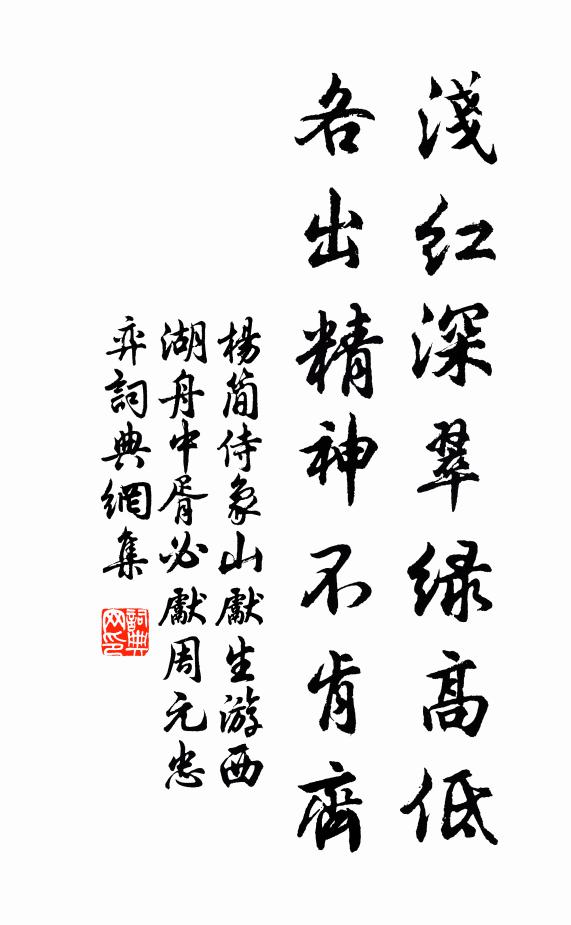 淺紅深翠綠高低
各出精神不肯齊
楊簡侍象山獻生游西
湖舟中胥必獻周元忠
弈詞典網集
詞典
网印